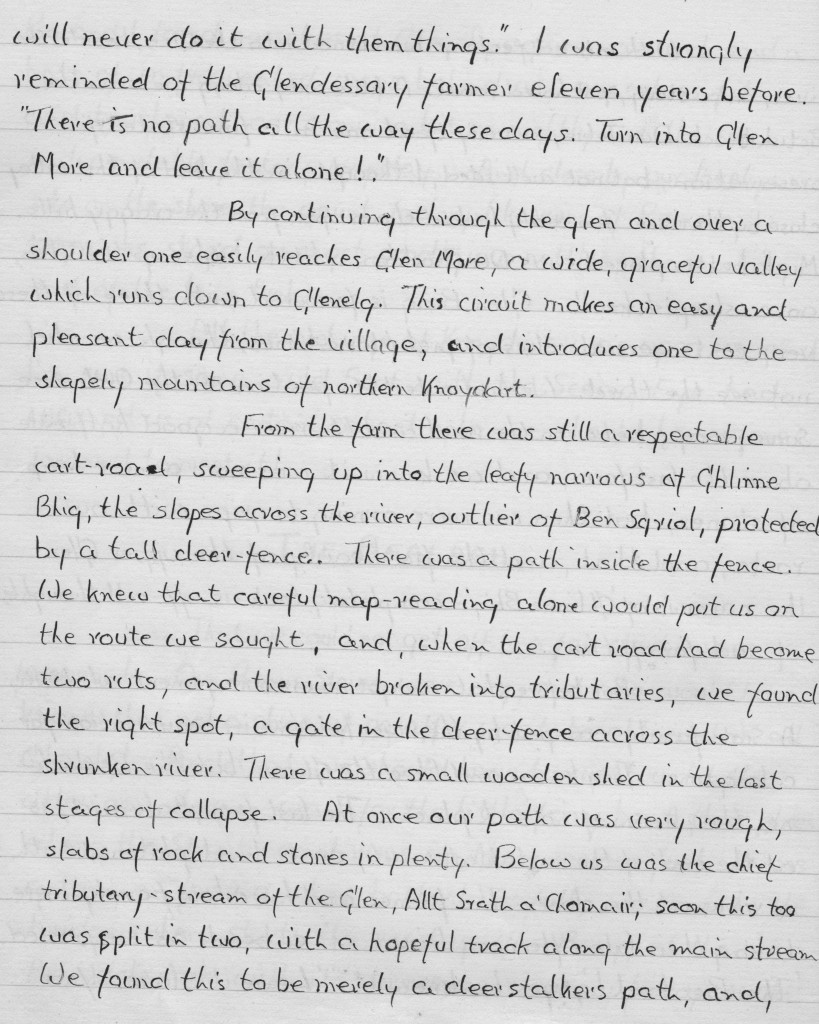 will never do it with them things." I was strongly
reminded of the Glendessary farmer eleven years before.
"There is no path all the way these days. Turn into Glen
More and leave it alone!"
By continuing through the glen and over a
shoulder one easily reaches Glen More, a wide, graceful valley
which runs down to Glenelg. This circuit makes an easy and
pleasant day from the village, and introduces one to the
shapely mountains of northern Knoydart.
From the farm there was still a respectable
cart-road, sweeping up into the leafy narrows of Ghlinne
Bhig, the slopes across the river, outlier of Ben Sgriol, protected
by a tall deer-fence.. There was a path inside the fence.
We knew that careful map-reading alone would put us on
the route we sought, and, when the cart road had become
two ruts, and the river broken into tributaries, we found
the right spot, a gate in the deer-fence across the
shrunken river. There was a small wooden shed in the last
stages of collapse. At once our path was very rough,
slabs of rock and stones in plenty. Below us was the chief
tributary-stream of the Glen, Allt Srath a' Chomair; soon this too
was split in two, with a hopeful track along the main stream
We found this to be merely a deerstalkers path, and,